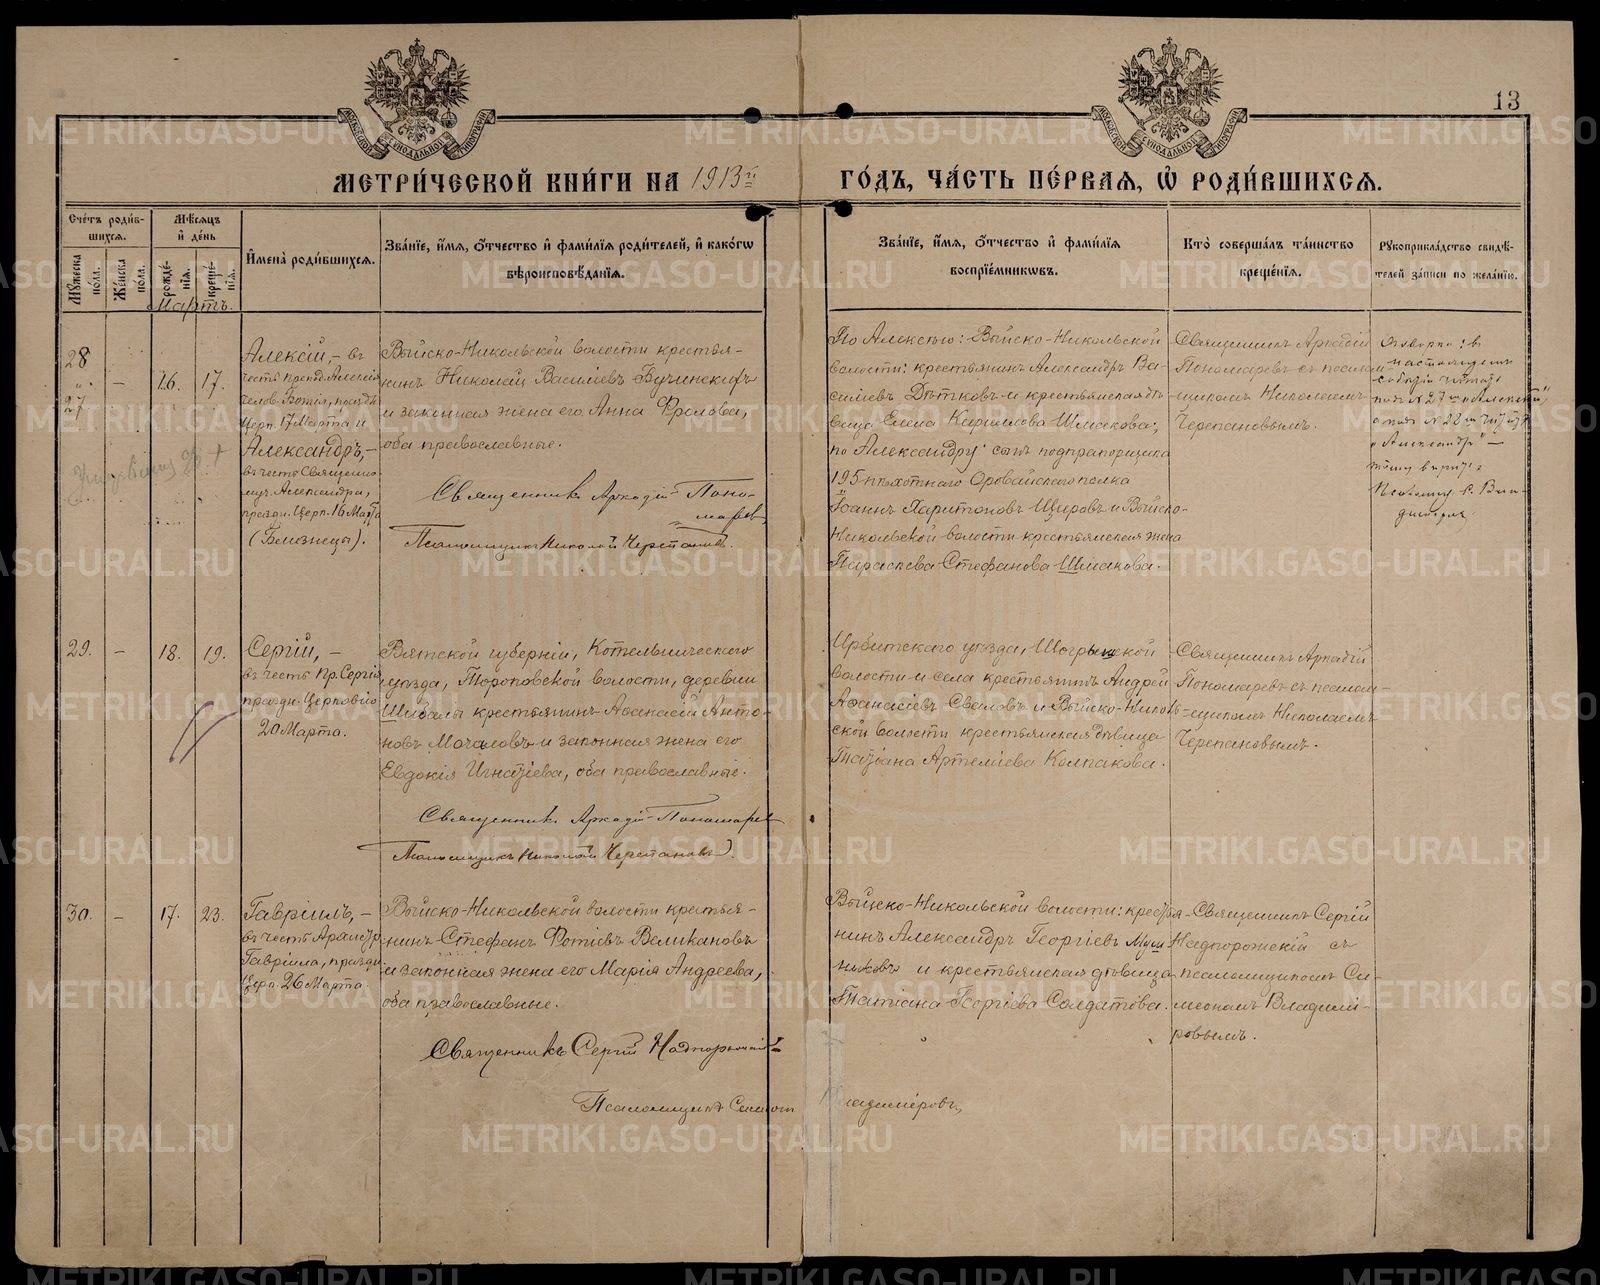 13
МЕТРИ́ЧЕСКОЙ КНИ́ГИ НА 1913й ГО́ДЪ, ЧА́СТЬ ПЕ́РВАЯ, Ѡ҆ РОДИ́ВШИХСЯ.
Сче́тъ роди́в-
шихся.
Му́жеска по́ла.
Же́нска по́ла.
Мѣ́сяцъ и҆ де́нь
рожде́нїя.
креще́нїя.
И҆мена̀ роди́вшихся.
Зва́нїе, и҆́мя, ѻ҆́тчество и҆ фами́лїя роди́телей, и҆ како́гѡ
вѣроисповѣ́данїя.
Зва́нїе, и҆́мя, ѻ҆́тчество и҆ фами́лїя
воспрїе́мниковъ.
Кто̀ соверша́лъ та́инство
креще́нїя.
Рꙋкоприкла́дство свидѣ́-
телей за́писи по жела́нїю.
Мартъ.
28
" -
27
16.
17.
Алексій, - въ
честь препод. Алексія
челов. Божія, праздн.
церк. 17 Марта и
Александръ, -
въ честь Священно
муч. Александра,
праздн. церк. 16 Марта
(Близнецы).
Выйско-Никольской волости крестья-
нинъ Николай Василіевъ Бучинскихъ
и законная жена его Анна Фролова,
оба православные.
Священникъ Аркадій Поно-
маревъ
Псаломщикъ Николай Черепановъ.
По Алексѣю: Выйско-Никольской
волости: крестьянинъ Александръ Ва-
силіевъ Дѣтковъ и крестьянская дѣ-
вица Елена Кириллова Шмакова;
по Александру: сынъ подпрапорщика
195 пѣхотнаго Оровайскаго полка
Іоаннъ Харитоновъ Щировъ и Выйско-
Никольской волости крестьянская жена
Параскева Стефанова Шмакова.
Священникъ Аркадій
Пономаревъ съ псалом-
щикомъ Николаемъ
Черепановымъ.
въ
настоящемъ
читать
подъ № 27м "Алексѣй",
а подъ № 28м читать
"Александръ" -
29.
-
18.
19.
Сергій, -
въ честь Пр. Сергія,
праздн. Церковію
20 Марта.
Вятской губерніи, Котельническаго
уѣзда, Тороповской волости, деревни
Шибалы крестьянинъ Аѳанасій Анто-
новъ Мочаловъ и законная жена его
Евдокія Игнатіева, оба православные.
Священникъ Аркадій Пономарев
Псаломщикъ Николай Черепановъ.
Ирбитскаго уѣзда, Шогрышской
волости и села крестьянинъ Андрей
Аѳанасіевъ Сваловъ и Выйско-Николь-
ской волости крестьянская дѣвица
Татіана Артеміева Колпакова.
Священникъ Аркадій
Пономаревъ съ псалом-
щикомъ Николаемъ
Черепановымъ.
30.
-
17.
23.
Гавріилъ, -
въ честь Архистр.
Гавріила, праздн.
церк. 26 Марта.
Выйско-Никольской волости крестья-
нинъ Стефанъ Фотіевъ Великановъ
и законная жена его Марія Андреева,
оба православные.
Священникъ Сергій Надпорожскій
Псаломщикъ Симеонъ Владиміровъ
Выйско-Никольской волости: крестья-
нинъ Александръ Георгіевъ
и крестьянская дѣвица
Татіана Георгіева Солдатова.
Священникъ Сергій
Надпорожскій съ
псаломщикомъ Си-
меономъ Владимі-
ровымъ.
METRIKI.GASO-URAL.RU